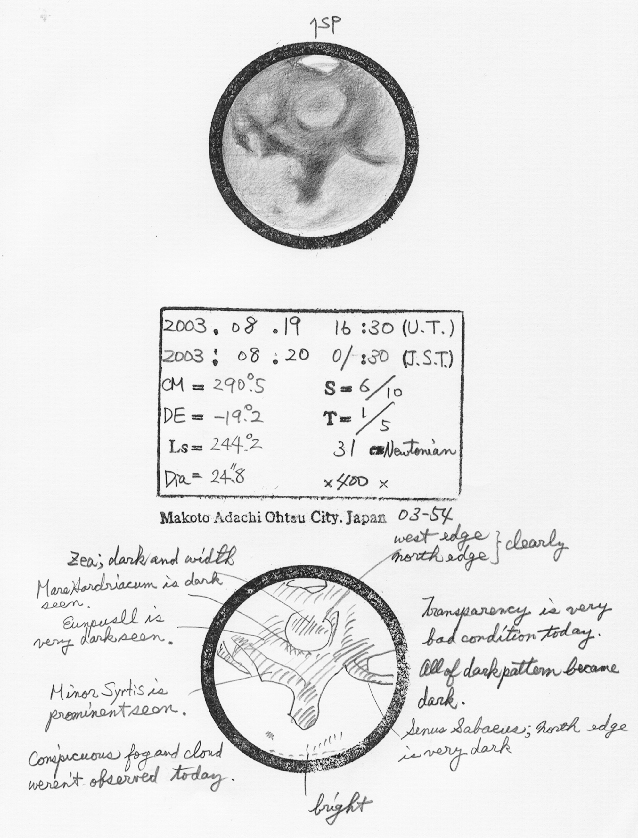 ↑SP
2003. 08 .19 16:30 (U.T.)
2003: 08 :20 01:30 (J.S.T.)
CM = 290°.5 S = 6/10
DE = -19°.2 T = 1/5
Ls = 244°.2 31 cm Newtonian
Dia = 24".8 ×400 ×
Makoto Adachi Ohtsu City. Japan 03-54
west edge } clearly
north edge
Zea; dark and width
Mare Hardriacum is dark
seen.
is
very dark seen.
Minor Syrtis is
prominent seen.
Conspicuous fog and cloud
weren't observed today.
Transparency is very
bad condition today.
All of dark pattern became
dark.
Senus Sabaeus; north edge
is very dark
bright